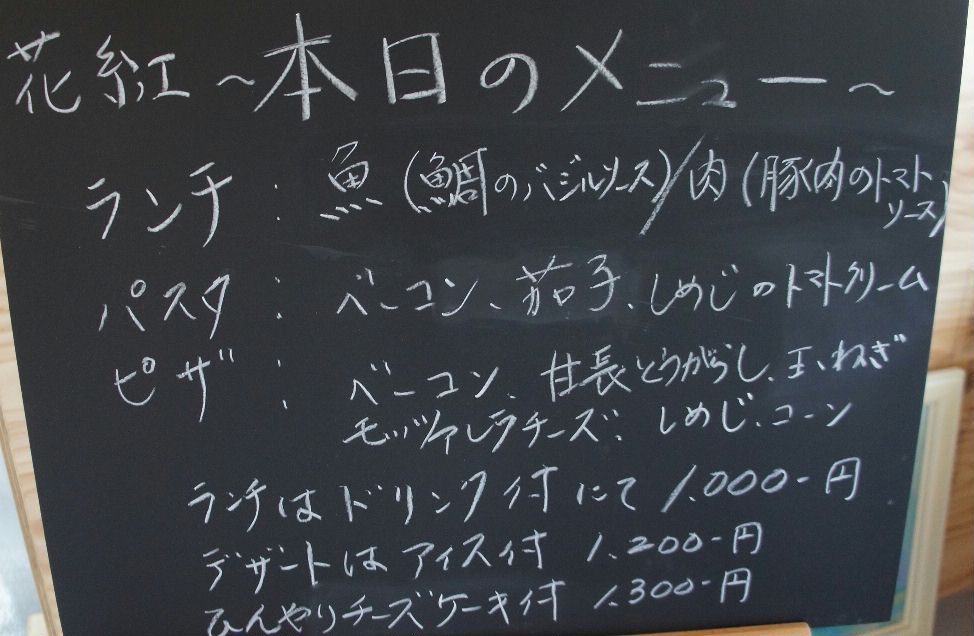 花紅 ~本日のメニュー~
ランチ : 魚 (鯛のバジルソース)/肉 (豚肉のトマトソース)
パスタ : ベーコン、茄子、しめじのトマトクリーム
ピザ : ベーコン、甘長とうがらし、玉ねぎ
モッツァレラチーズ、しめじ、コーン
ランチはドリンク付にて 1.000-円
デザートは アイス付 1.200-円
ひんやりチーズケーキ付 1.300-円